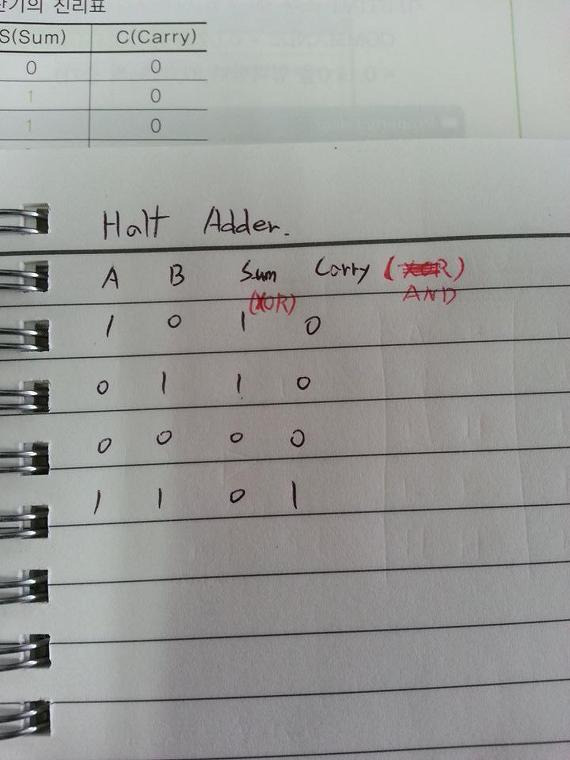 기의 진리표
S(Sum) C(Carry)
0 0
1 0
1 0
Half Adder.
A B Sum Carry (XOR)
(XOR) AND
1 0 1 0
0 1 1 0
0 0 0 0
1 1 0 1